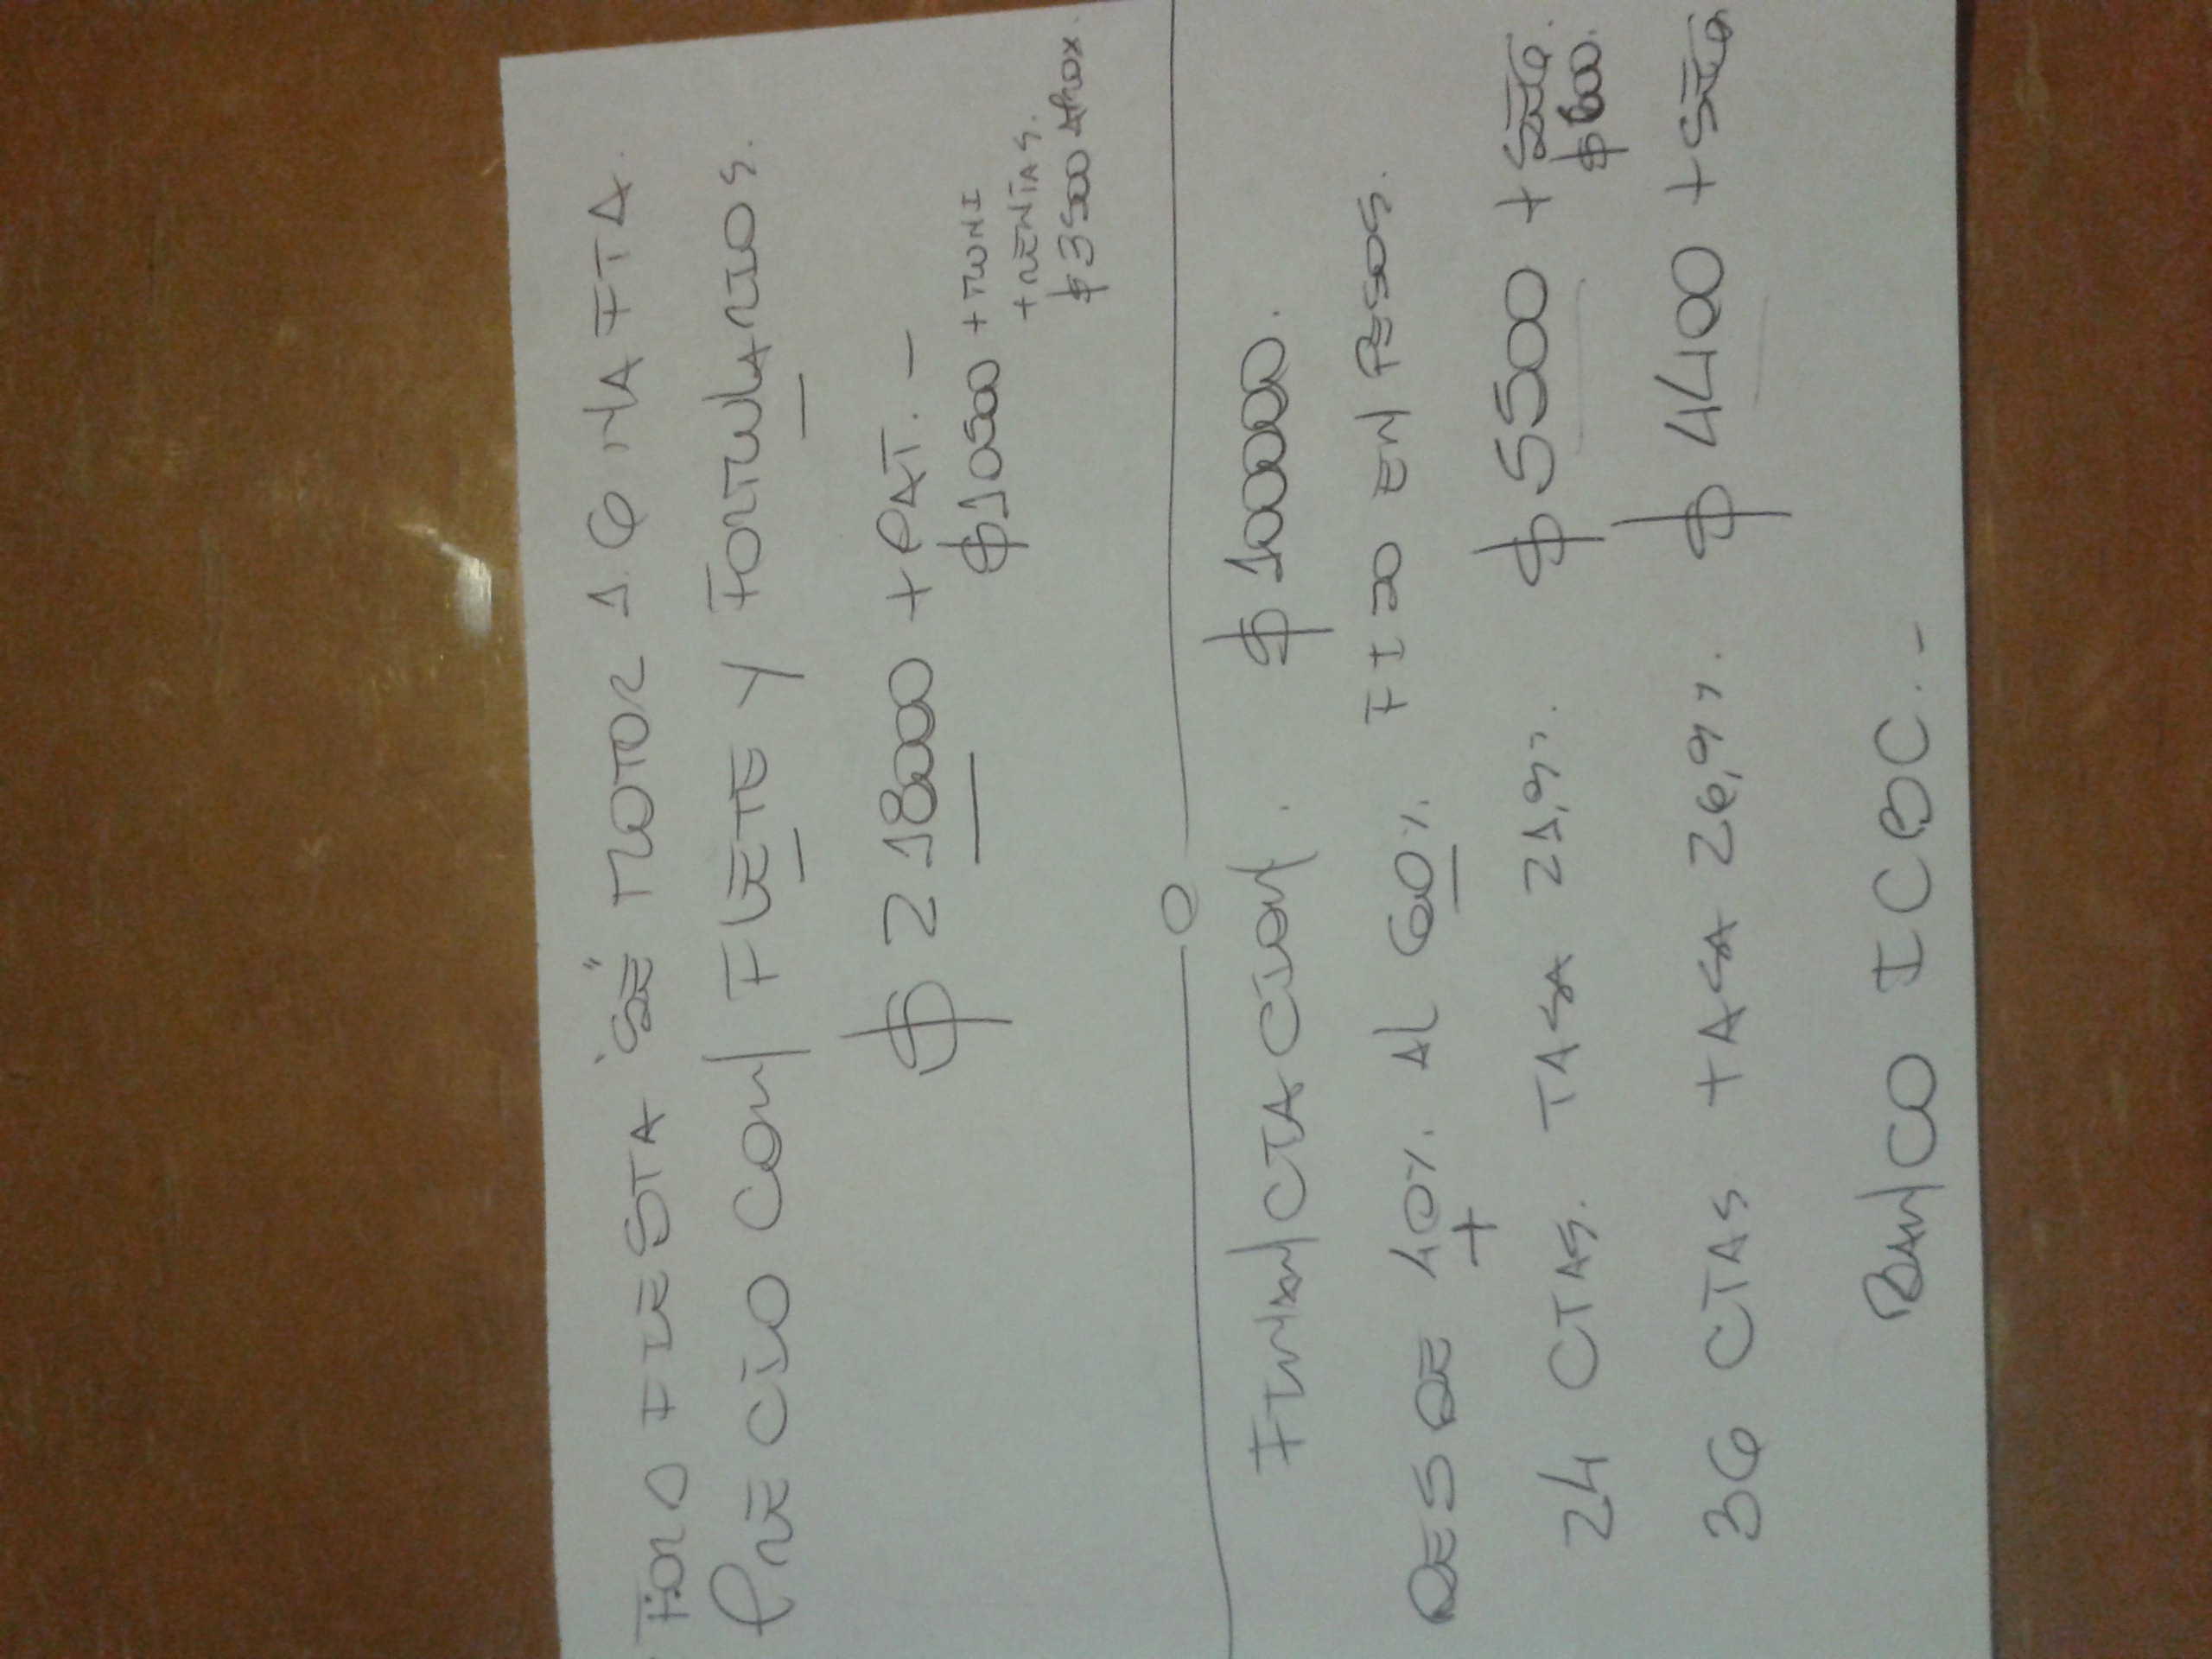 FORD FIESTA "SE" MOTOR 1.6 NAFTA.
PRECIO CON FLETE Y FORMULARIOS.
$ 218000 + PAT. -
$10500 + MUNI
+ RENTAS.
$3500 APROX.
FINANCIACION. $ 100000.
DESDE 40%. AL 60%. FIJO EN PESOS.
+
24 CTAS. TASA 21,9%. $ 5500 + SEG.
$600.
36 CTAS TASA 26,9%. $ 4400 + SEG
BANCO ICBC.-